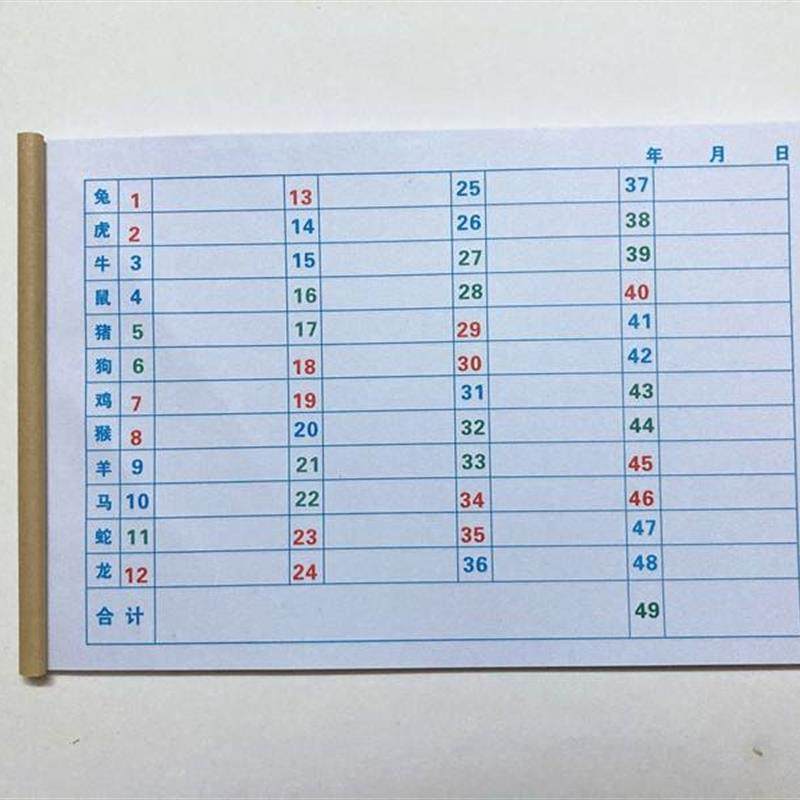 年 月 日
兔 1 13 25 37
虎 2 14 26 38
牛 3 15 27 39
鼠 4 16 28 40
猪 5 17 29 41
狗 6 18 30 42
鸡 7 19 31 43
猴 8 20 32 44
羊 9 21 33 45
马 10 22 34 46
蛇 11 23 35 47
龙 12 24 36 48
合计 49